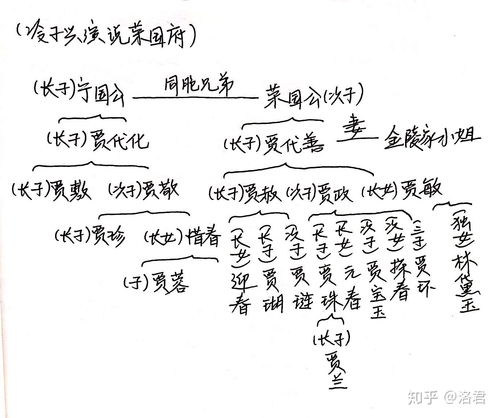 (冷子兴演说荣国府)
(长子)宁国公 同胞兄弟 荣国公(次子)
(长子)贾代化 (长子)贾代善 妻 金陵家小姐
(长子)贾敷 (次子)贾敬 (长子)贾赦 (次子)贾政 (长女)贾敏
(长子)贾珍 (长女)惜春
(子)贾蓉
(长女)迎春
(长子)贾瑚
(次子)贾琏
(长子)贾珠
(长女)元春
(次子)贾宝玉
(次女)探春
(三子)贾环
(独女)林黛玉
(长子)贾兰
知乎 @洛君